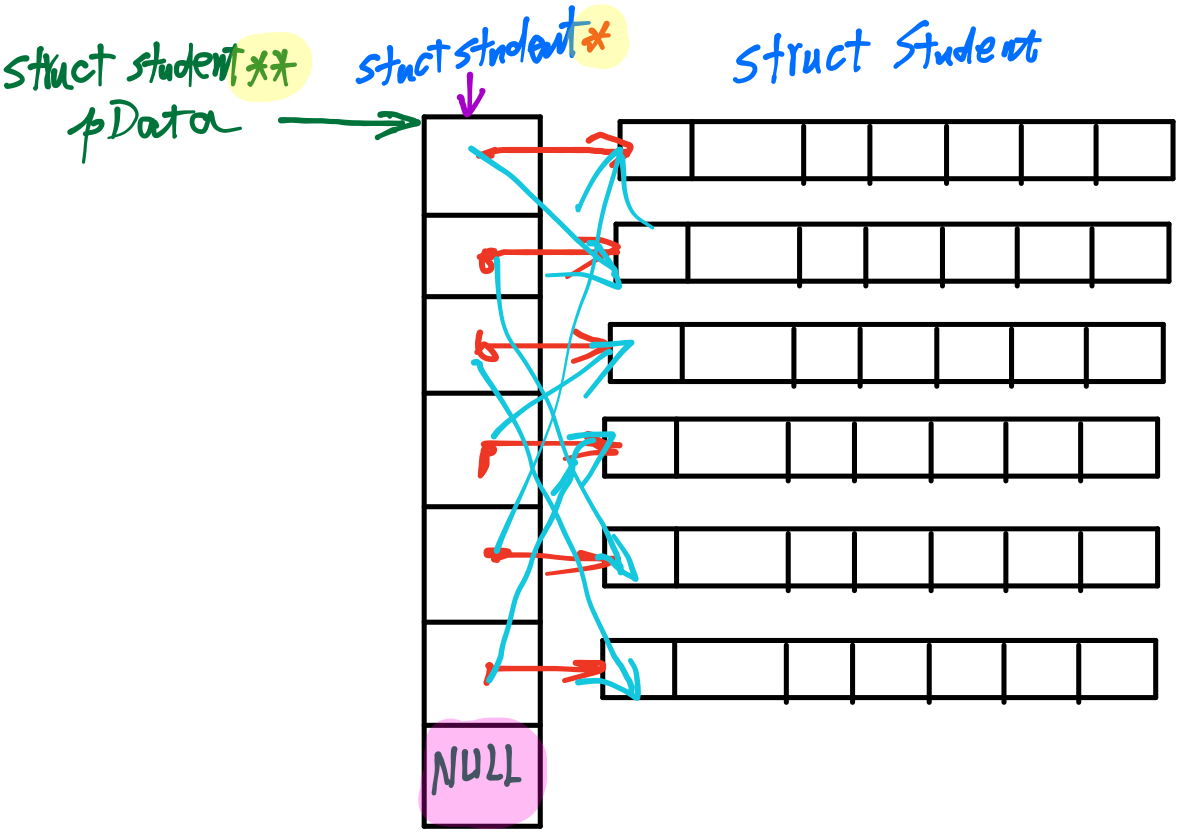 struct student**
pData
stuct student*
struct Student
NULL